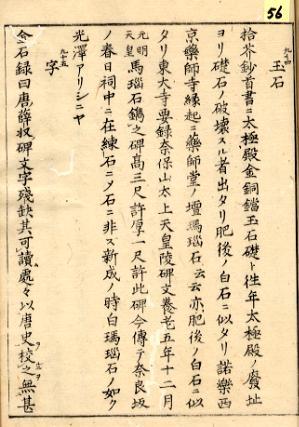 56
九ノ四
玉石
拾芥鈔首書ニ太極殿金銅鐺玉石礎ト徃年太極殿ノ廢址
ヨリ礎石ノ破壞スル者出タリ肥後ノ白石ニ似タリ諾樂西
京藥師寺緣起ニ藥師堂ノ壇瑪瑙石云云亦肥後ノ白石ニ似
タリ東大寺要録奈保山太上天皇陵碑文養老五年十二月
元明天皇
馬瑙石鐫之碑髙三尺許厚一尺許此碑今傳テ奈良坂
ノ春日祠中ニ在練石ニメ石ニ非ス新成ノ時白瑪瑙石ノ如ク
光澤アリシニヤ
九ノ十五
字
金石録曰唐薛收碑文字殘缺其可讀處々以唐史校之無甚